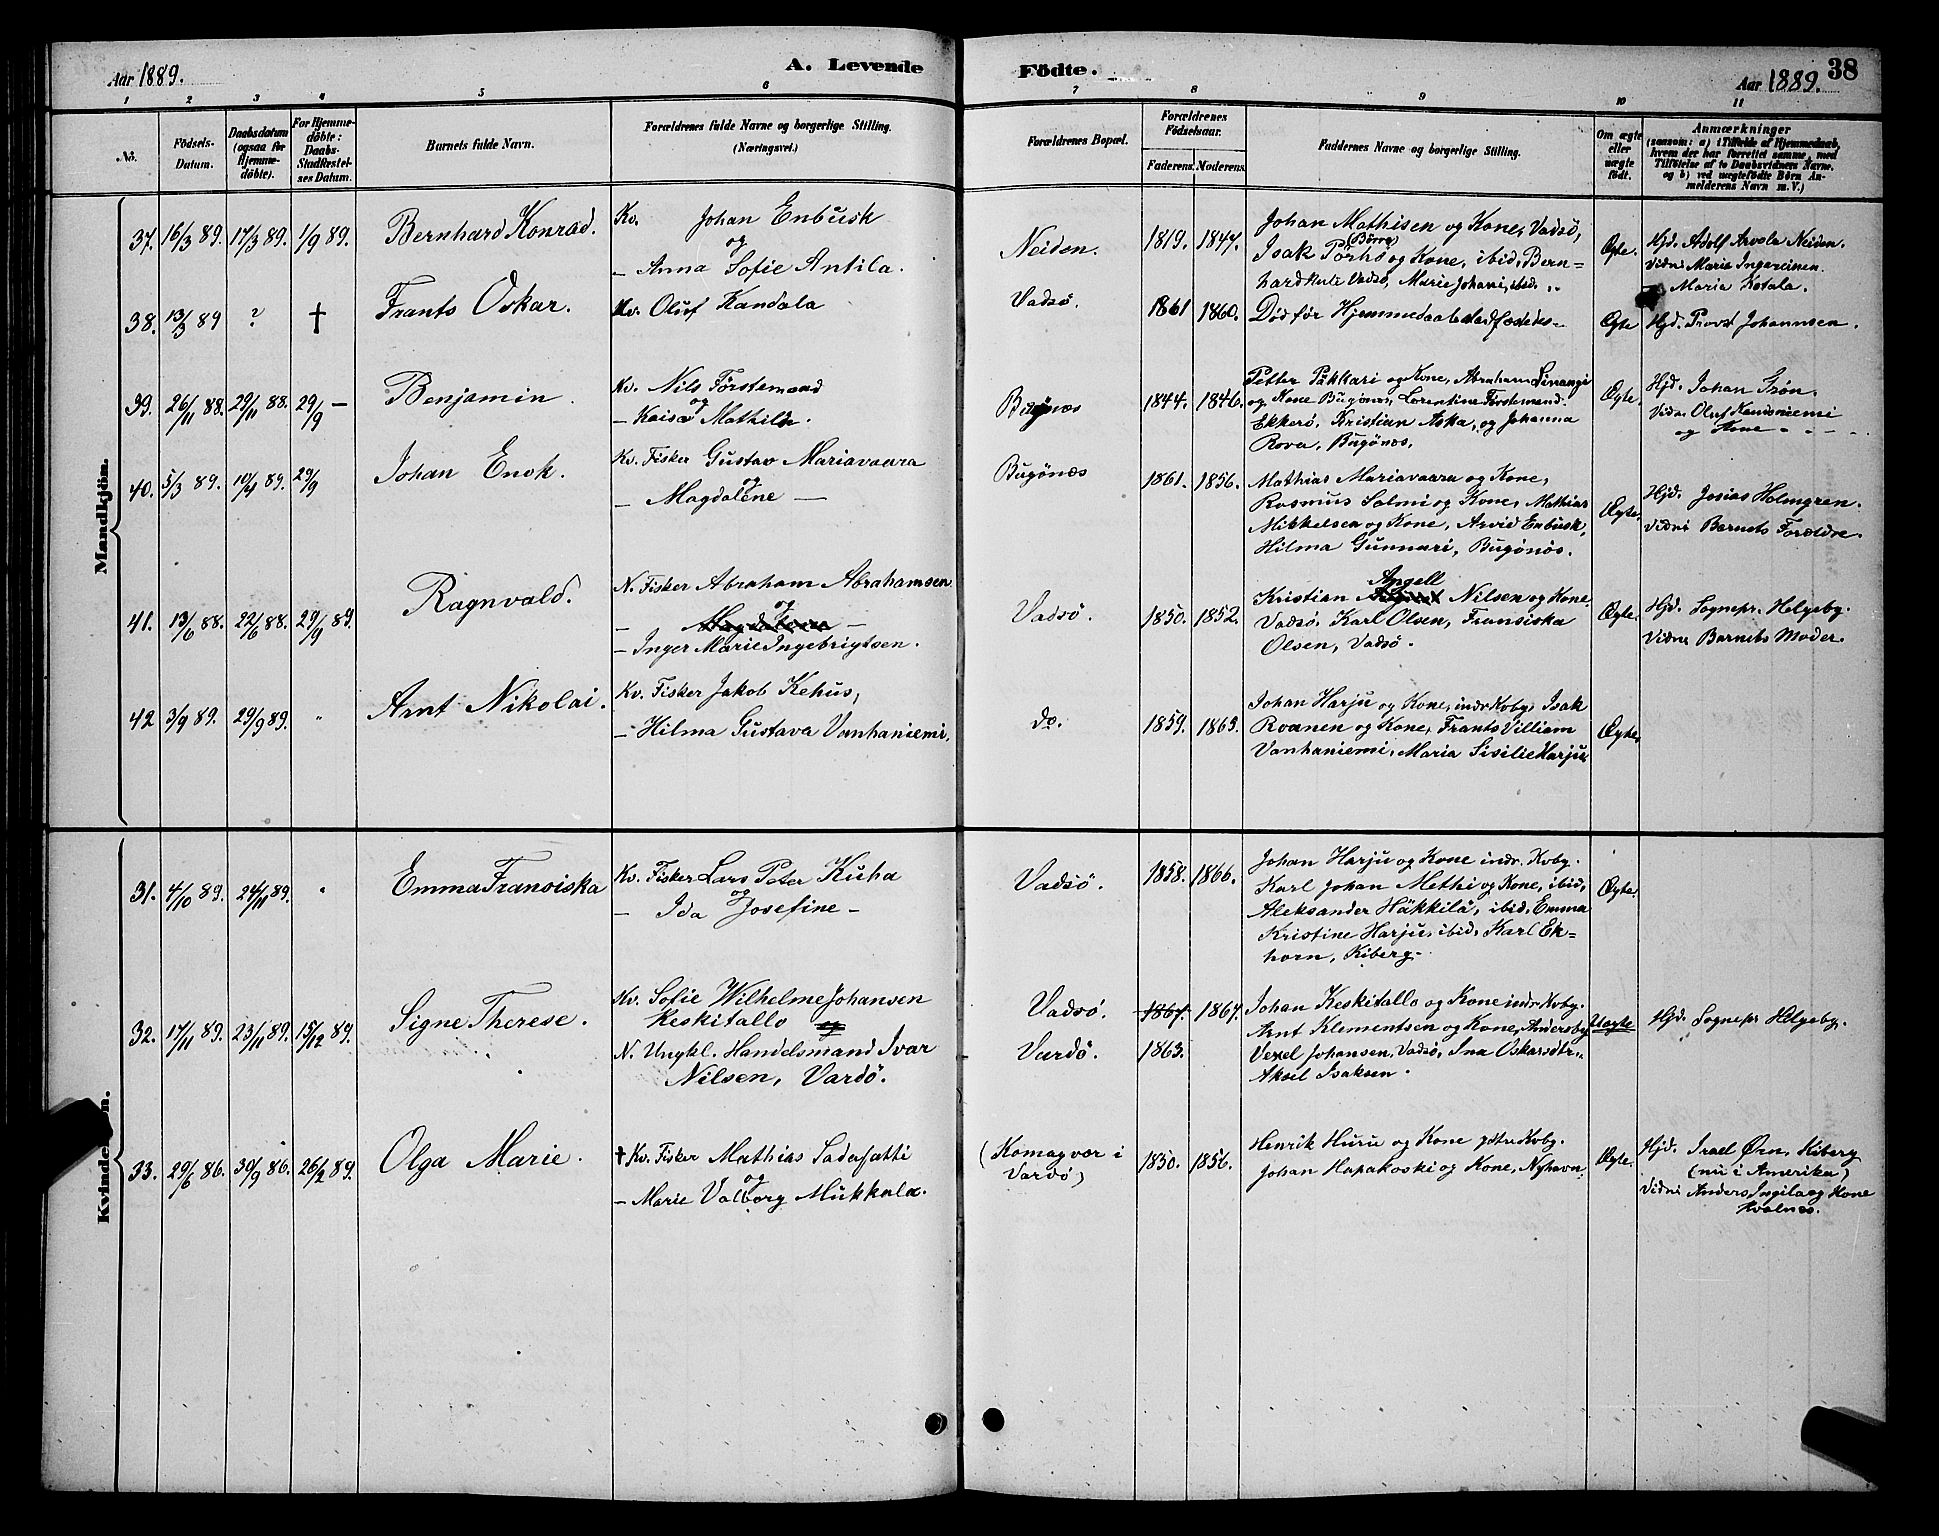 Aar 1889.
A. Levende
Födte.
Aar 1889.
38
1 2 3 4 5 6 7 8 9 10 11
No.
Födsels-Datum.
Daabsdatum (ogsaa for Hjemme-döbte).
For Hjemme-döbte: Daabs-Stadfæstel-ses Datum.
Barnets fulde Navn.
Forældrenes fulde Navne og borgerlige Stilling.
(Næringsvei.)
Forældrenes Bopæl.
Forældrenes Födselsaar.
Faderens. Moderens.
Faddernes Navne og borgerlige Stilling.
Om ægte eller uægte födt.
Anmærkninger
(saasom: a) i Tilfælde af Hjemmedaab,
hvem der har forrettet samme, med
Tilföielse af to Daabsvidners Navne.
og b) ved uægtefödte Börn An-
melderens Navn m. V.)
Mandkjön.
37. 16/3 89. 17/3 89. 1/9 89.
Bernhard Konrad.
Kv. Johan Enbusk
og
— Anna Sofie Antila.
Neiden.
1819. 1847.
Johan Mathisen og Kone, Vadsö,
(Börre)
Isak Pörhö og Kone, ibid, Bern=
hard Vadsö, Marie Johani, ibid.
Ægte.
Hjd. Adolf Arvola Neiden.
Vidn: Maria Ingereinen.
— Maria Kotala.
38. 13/3 89 ? †
Frants Oskar.
Kv. Oluf Kandala
Vadsö.
1861 1860.
Död för Hjemmedaabstadfæstels-
Ægte
Hjd. Provst Johannsen.
39. 26/11 88. 29/11 88. 29/9 —
Benjamin.
Kv. Nils Förstemand
og
— Kaisa Mathilde.
Bugönæs
1844. 1846.
Petter Pakkari og Kone, Abraham Linangi
og Kone Bugönæs, Lorentine Förstemand.
Ekkerö, Kristian Aska, og Johanna
Rova, Bugönæs.
Ægte.
Hjd. Johan Grön.
Vidn: Oluf Kenisniemi
og Kone
40. 5/3 89. 10/4 89. 29/9
Johan Enok.
Kv. Fisker Gustav Mariavaara
og
— Magdalene —
Bugönæs
1861. 1856.
Mathias Mariavaara og Kone,
Rasmus Salmi og Kone, Mathias
Mikkelsen og Kone, Arvid Enbusk,
Hilma Gunnari, Bugönæs.
Ægte.
Hjd. Josias Holmgren.
Vidn: Barnets Forældre.
41. 13/6 88. 22/6 88. 29/9 89.
Ragnvald.
N. Fisker Abraham Abrahamsen
og
— Magdalena —
— Inger Marie Ingebrigtsen.
Vadsö.
1850. 1852.
Angell
Kristian Nilsen og Kone,
Vadsö, Karl Olsen, Fransiska
Olsen, Vadsö.
Ægte.
Hjd. Sognepr. Helgeby.
Vidne Barnets Moder.
42 3/9 89. 29/9 89. "
Arnt Nikolai.
Kv. Fisker Jakob Kehus,
— Hilma Gustava Vanhaniemi,
do.
1859. 1863.
Johan Harju og Kone, indr. Kvby, Isak
Roanen og Kone, Frants Villiam
Vanhaniemi, Maria Sisilie Harju.
Ægte.
Kvindekjön.
31. 4/10 89. 24/11 89. "
Emma Fransiska
Kv. Fisker Lars Peter Kuha
og
— Ida Josefine —
Vadsö.
1858. 1866.
Johan Harju og Kone indr. Kvby.
Karl Johan Methi og Kone, ibid,
Aleksander Häkkilä, ibid, Emma
Kristine Harju, ibid, Karl Ek=
horn, Kiberg.
Ægte.
32. 17/11 89. 23/11 89. 15/12 89.
Signe Therese.
Kv. Sofie Wilhelme Johansen
Keskitallo og
N. Ungkl. Handelsmand Ivar
Nilsen, Vardö.
Vadsö.
Vardö.
1867. 1867.
1863.
Johan Keskitallo og Kone indr. Kvby.
Arnt Klementsen og Kone, Andersby
Vexel Johansen, Vadsö, Ina Oskarsdtr.,
Aksel Isaksen.
Uægte
Hjd. Sognepr Helgeby.
33. 29/6 86. 30/9 86. 26/12 89.
Olga Marie.
† Kv. Fisker Mathias Sadasatti
og
— Marie Valborg Mukkala.
(Komagvær i
Vardö)
1850. 1856.
Henrik Huru og Kone ydtr Kvby.
Johan Hapakoski og Kone, Nyhavn.
Ægte.
Hjd. Israel Örn, Kiberg
(nu i Amerika)
Vidn: Anders Ingila og Kone
Kvalnes.